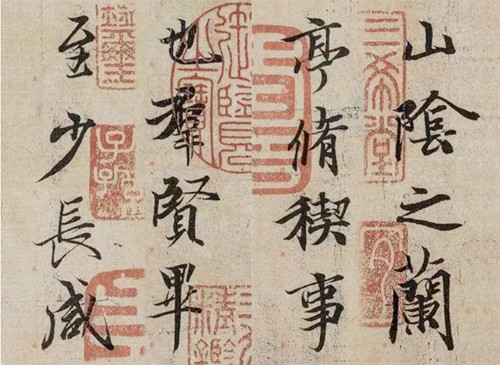 山陰之蘭
亭脩稧事
也羣賢畢
至少長咸
三希堂